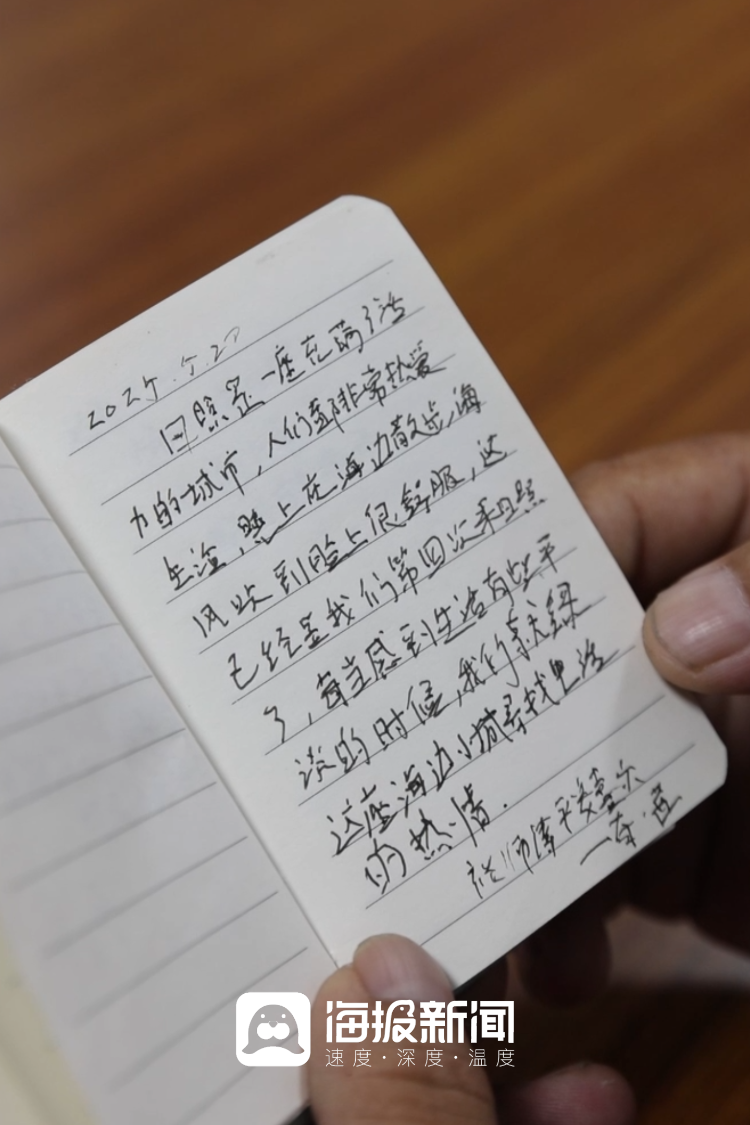 2025.5.20
日照是一座充满了活
力的城市，人们都非常热爱
生活，晚上在海边散步，海
风吹到脸上很舒服，这
已经是我们第四次来日照
了，每当感到生活有些平
淡的时候，我们就会来
这座海边小城寻找生活
的热情．
祝师傅平安喜乐
海报新闻
速度·深度·温度